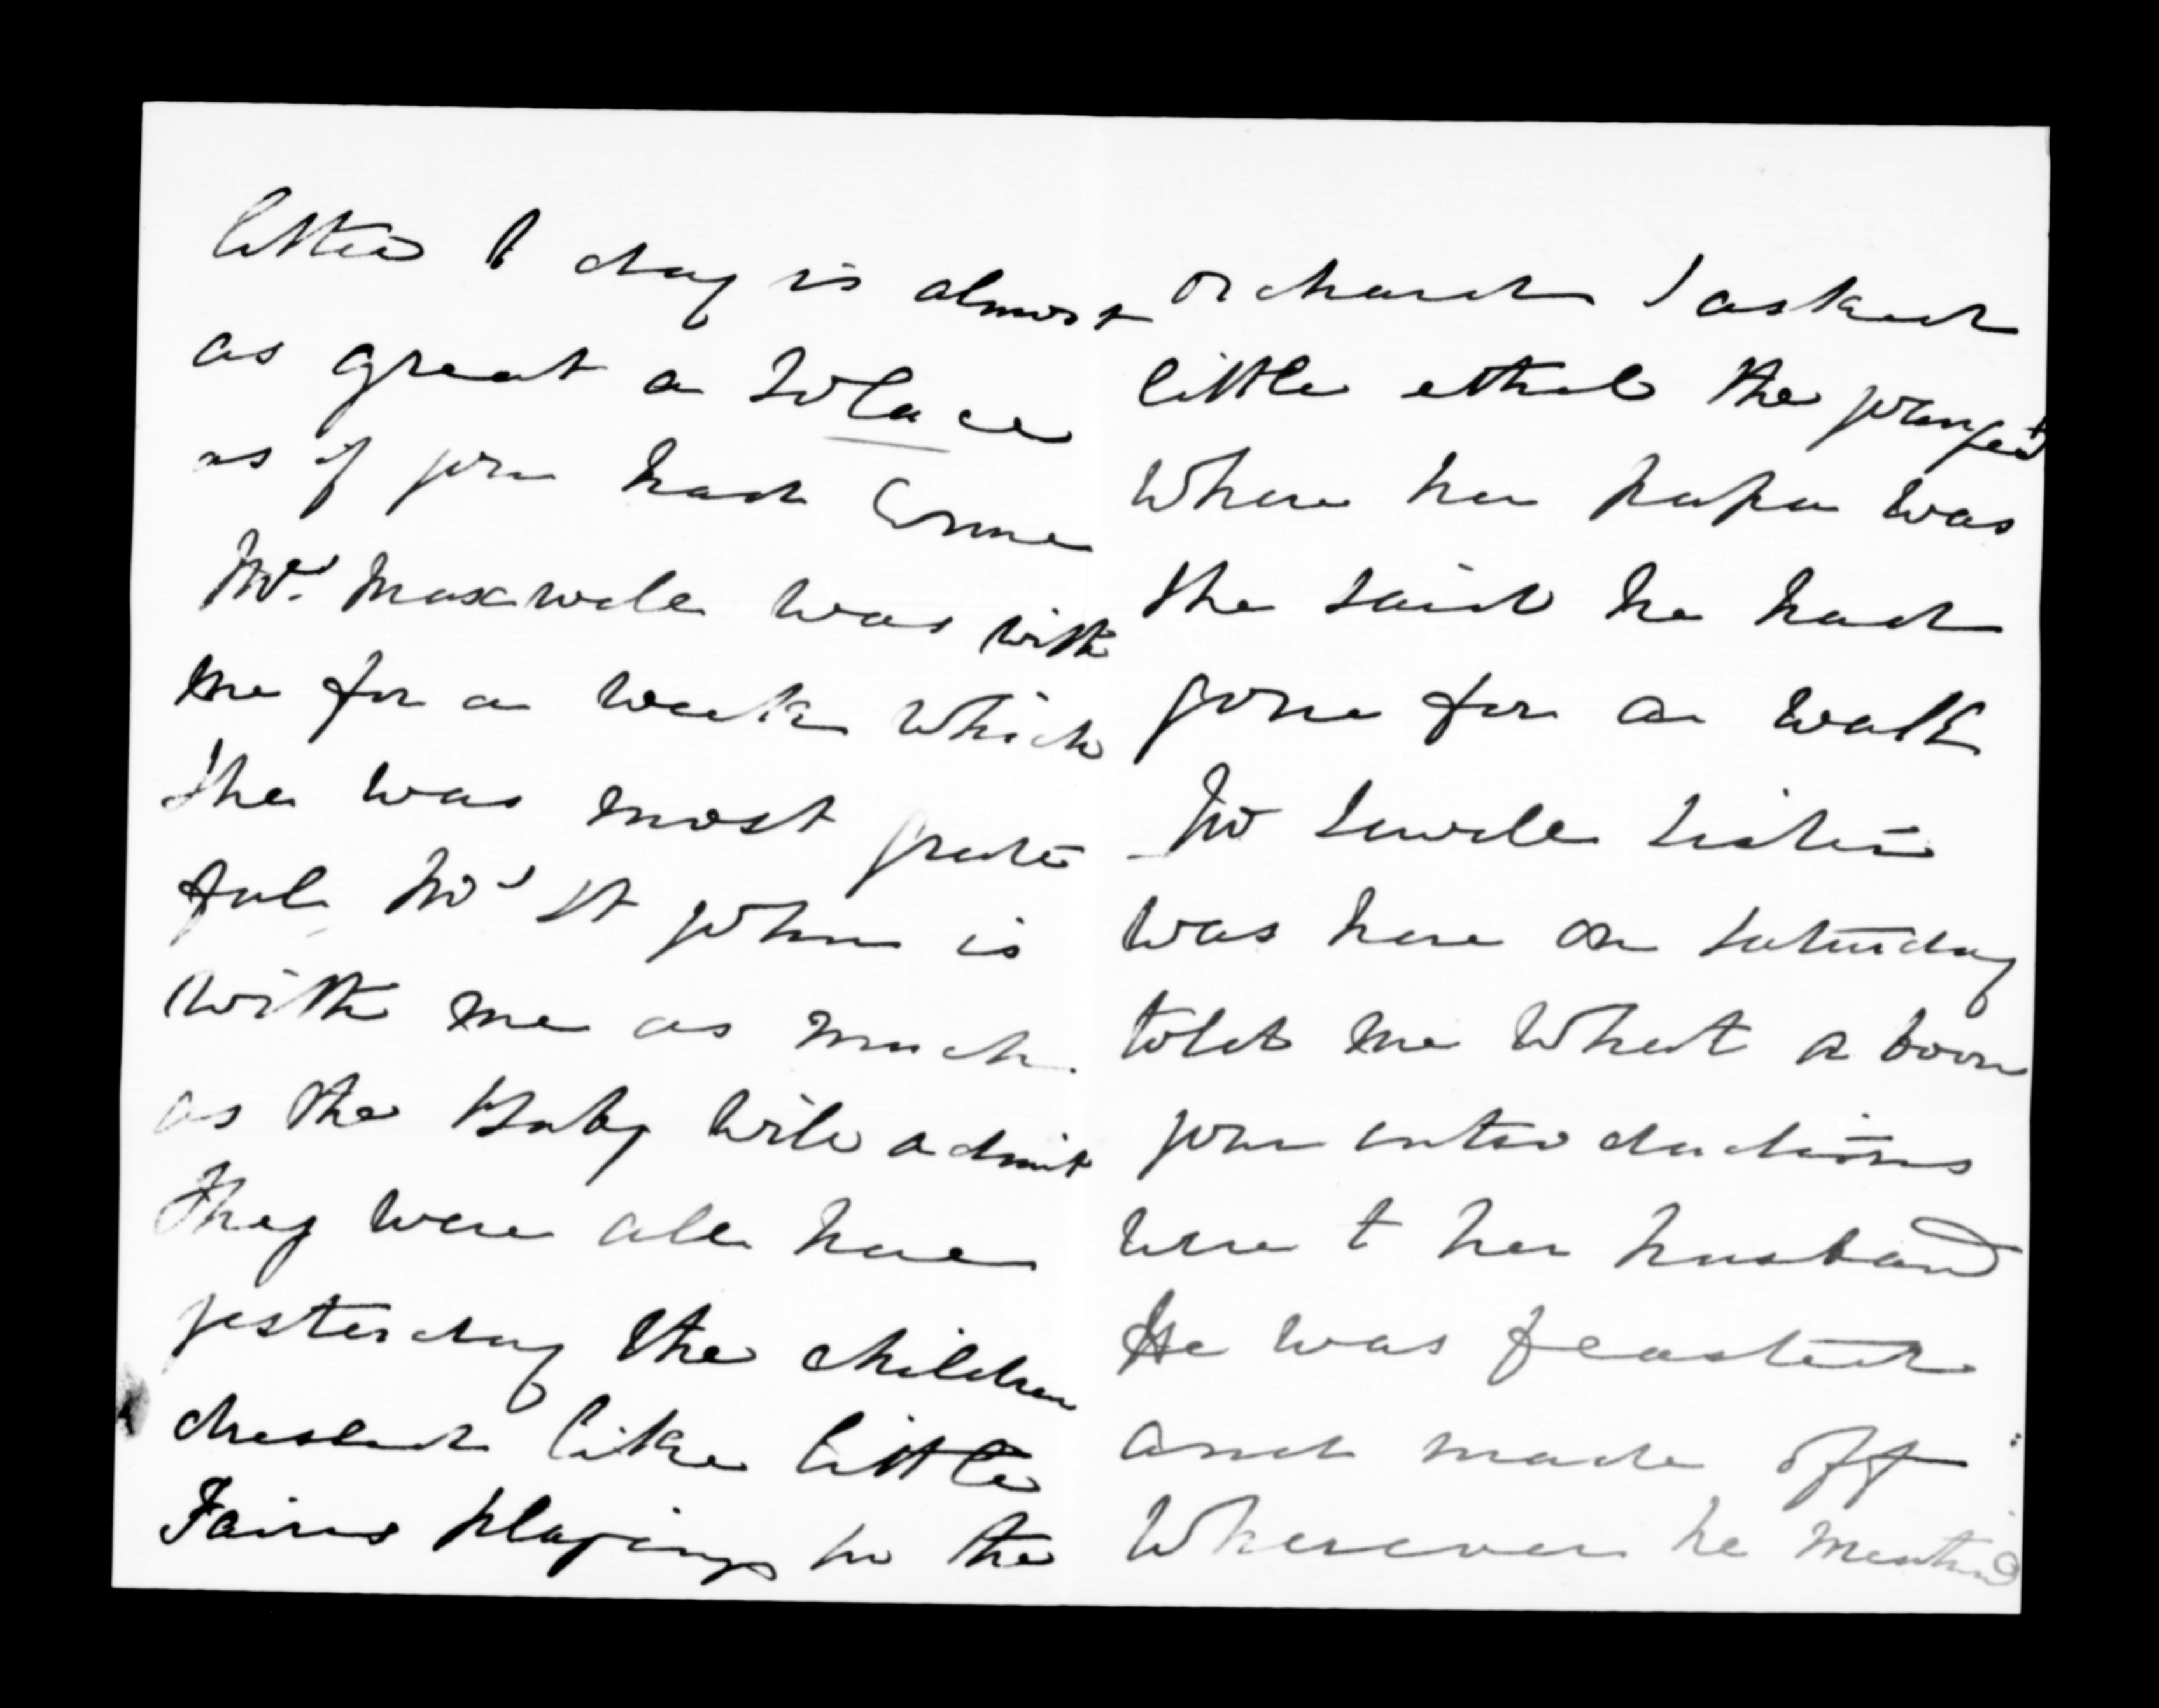 letter t day is almost
as great a Solace
as if you had Come
Mrs Maxwell was with
me for a week which
she was most grate
ful Mrs St John is
with me as much
as the Baby will admit
They were all here
yesterday the children
dressed like little
Fairies playing in the
orchard I asked
little ethel the youngest
where her papa was
she said he had
gone for a walk
Sewell Sister
was here on Saturday
told me what a boon
your introductions
were t her husband
He was feasted
and made off
Wherever he mention'd